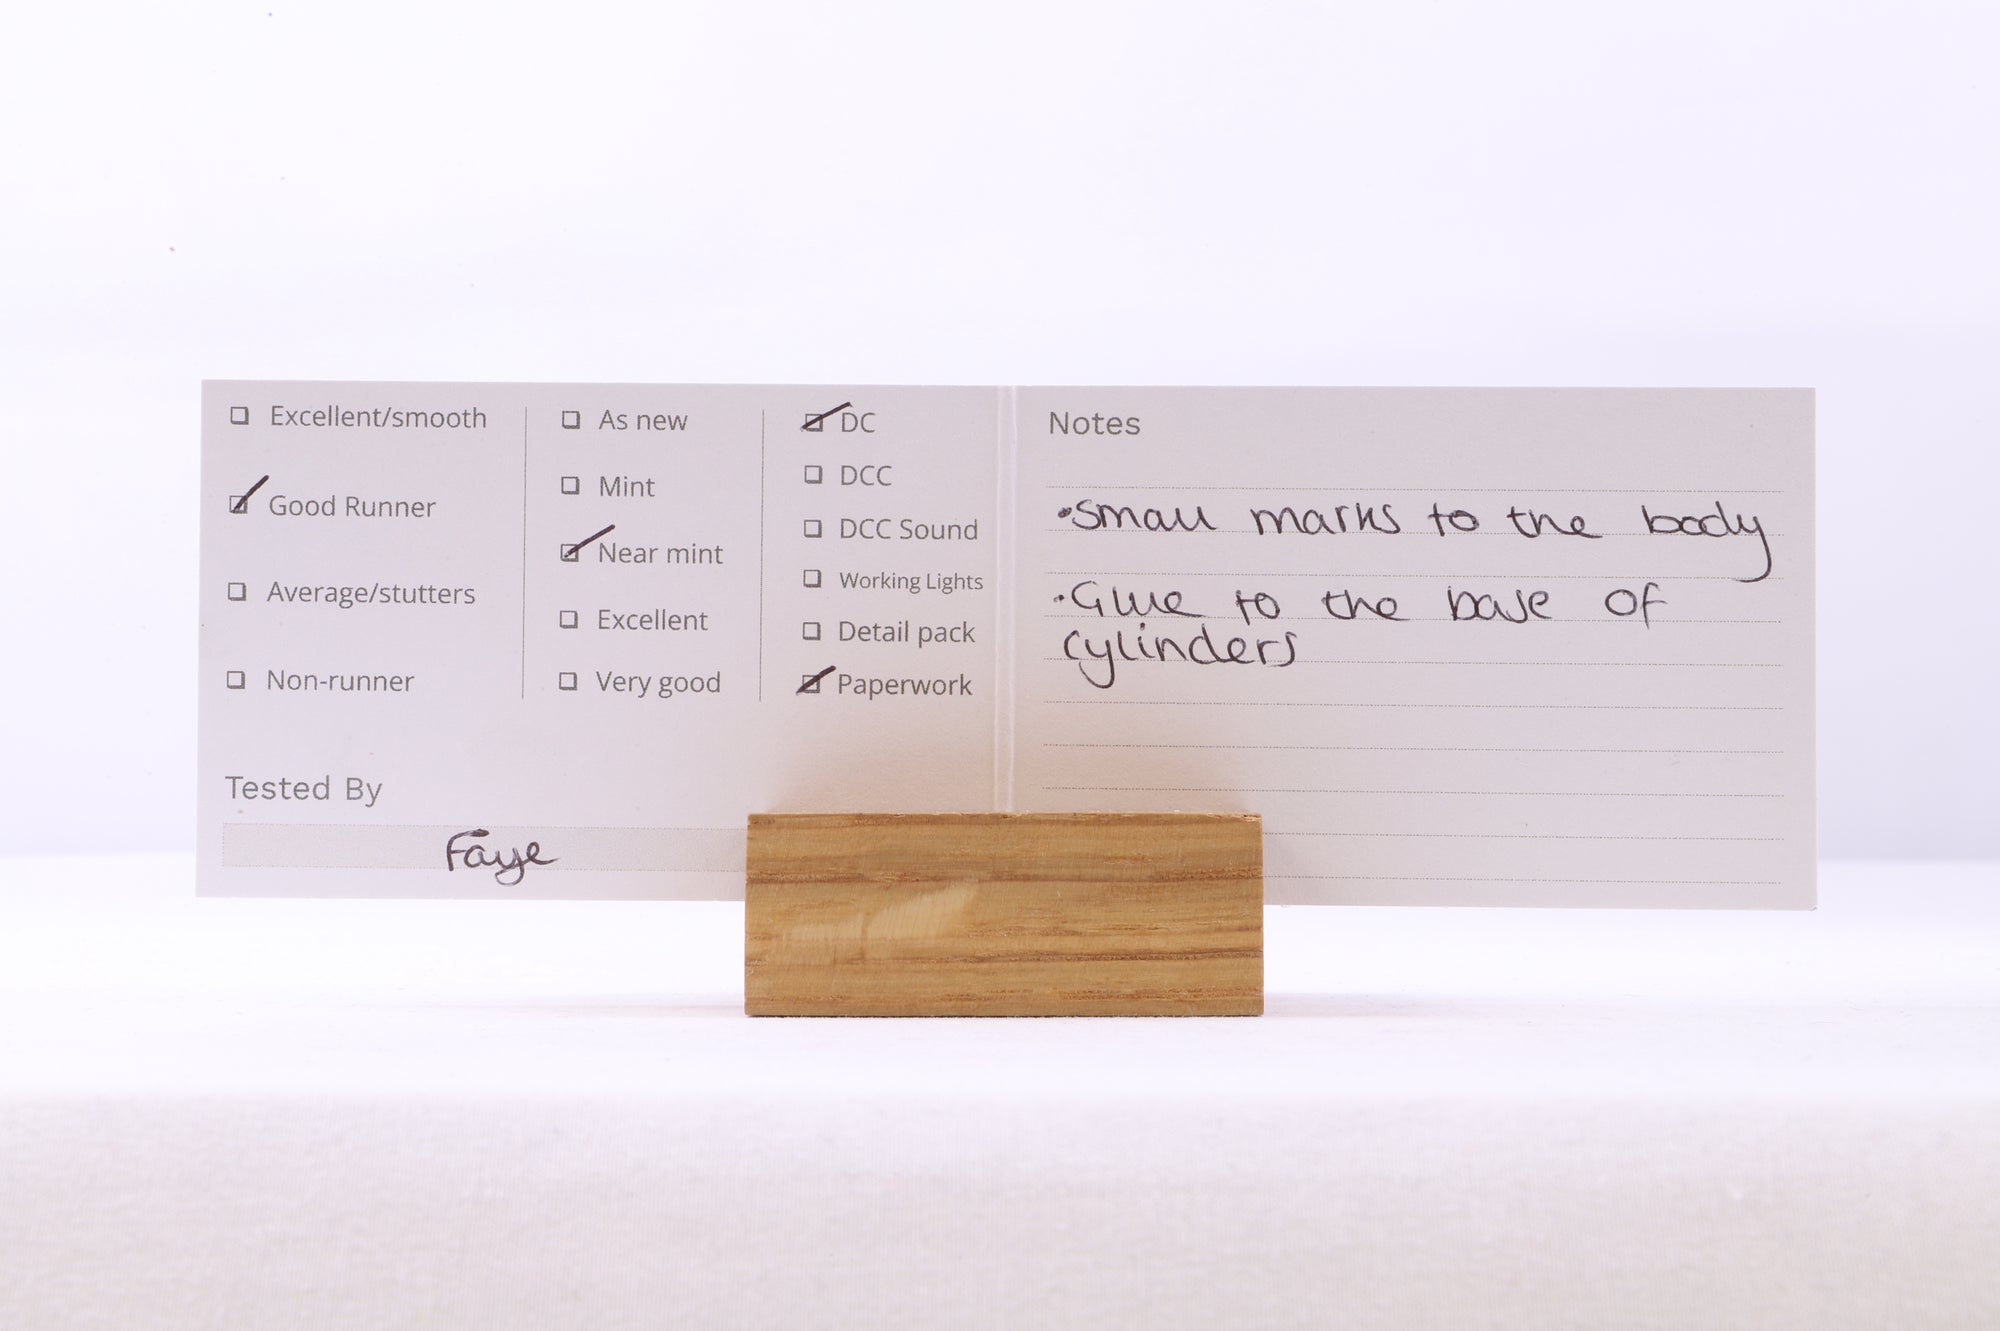 Excellent/smooth
Good Runner
Average/stutters
Non-runner
As new
Mint
Near mint
Excellent
Very good
DC
DCC
DCC Sound
Working Lights
Detail pack
Paperwork
Tested By
Faye
Notes
•Small marks to the body
•Glue to the base of
cylinders